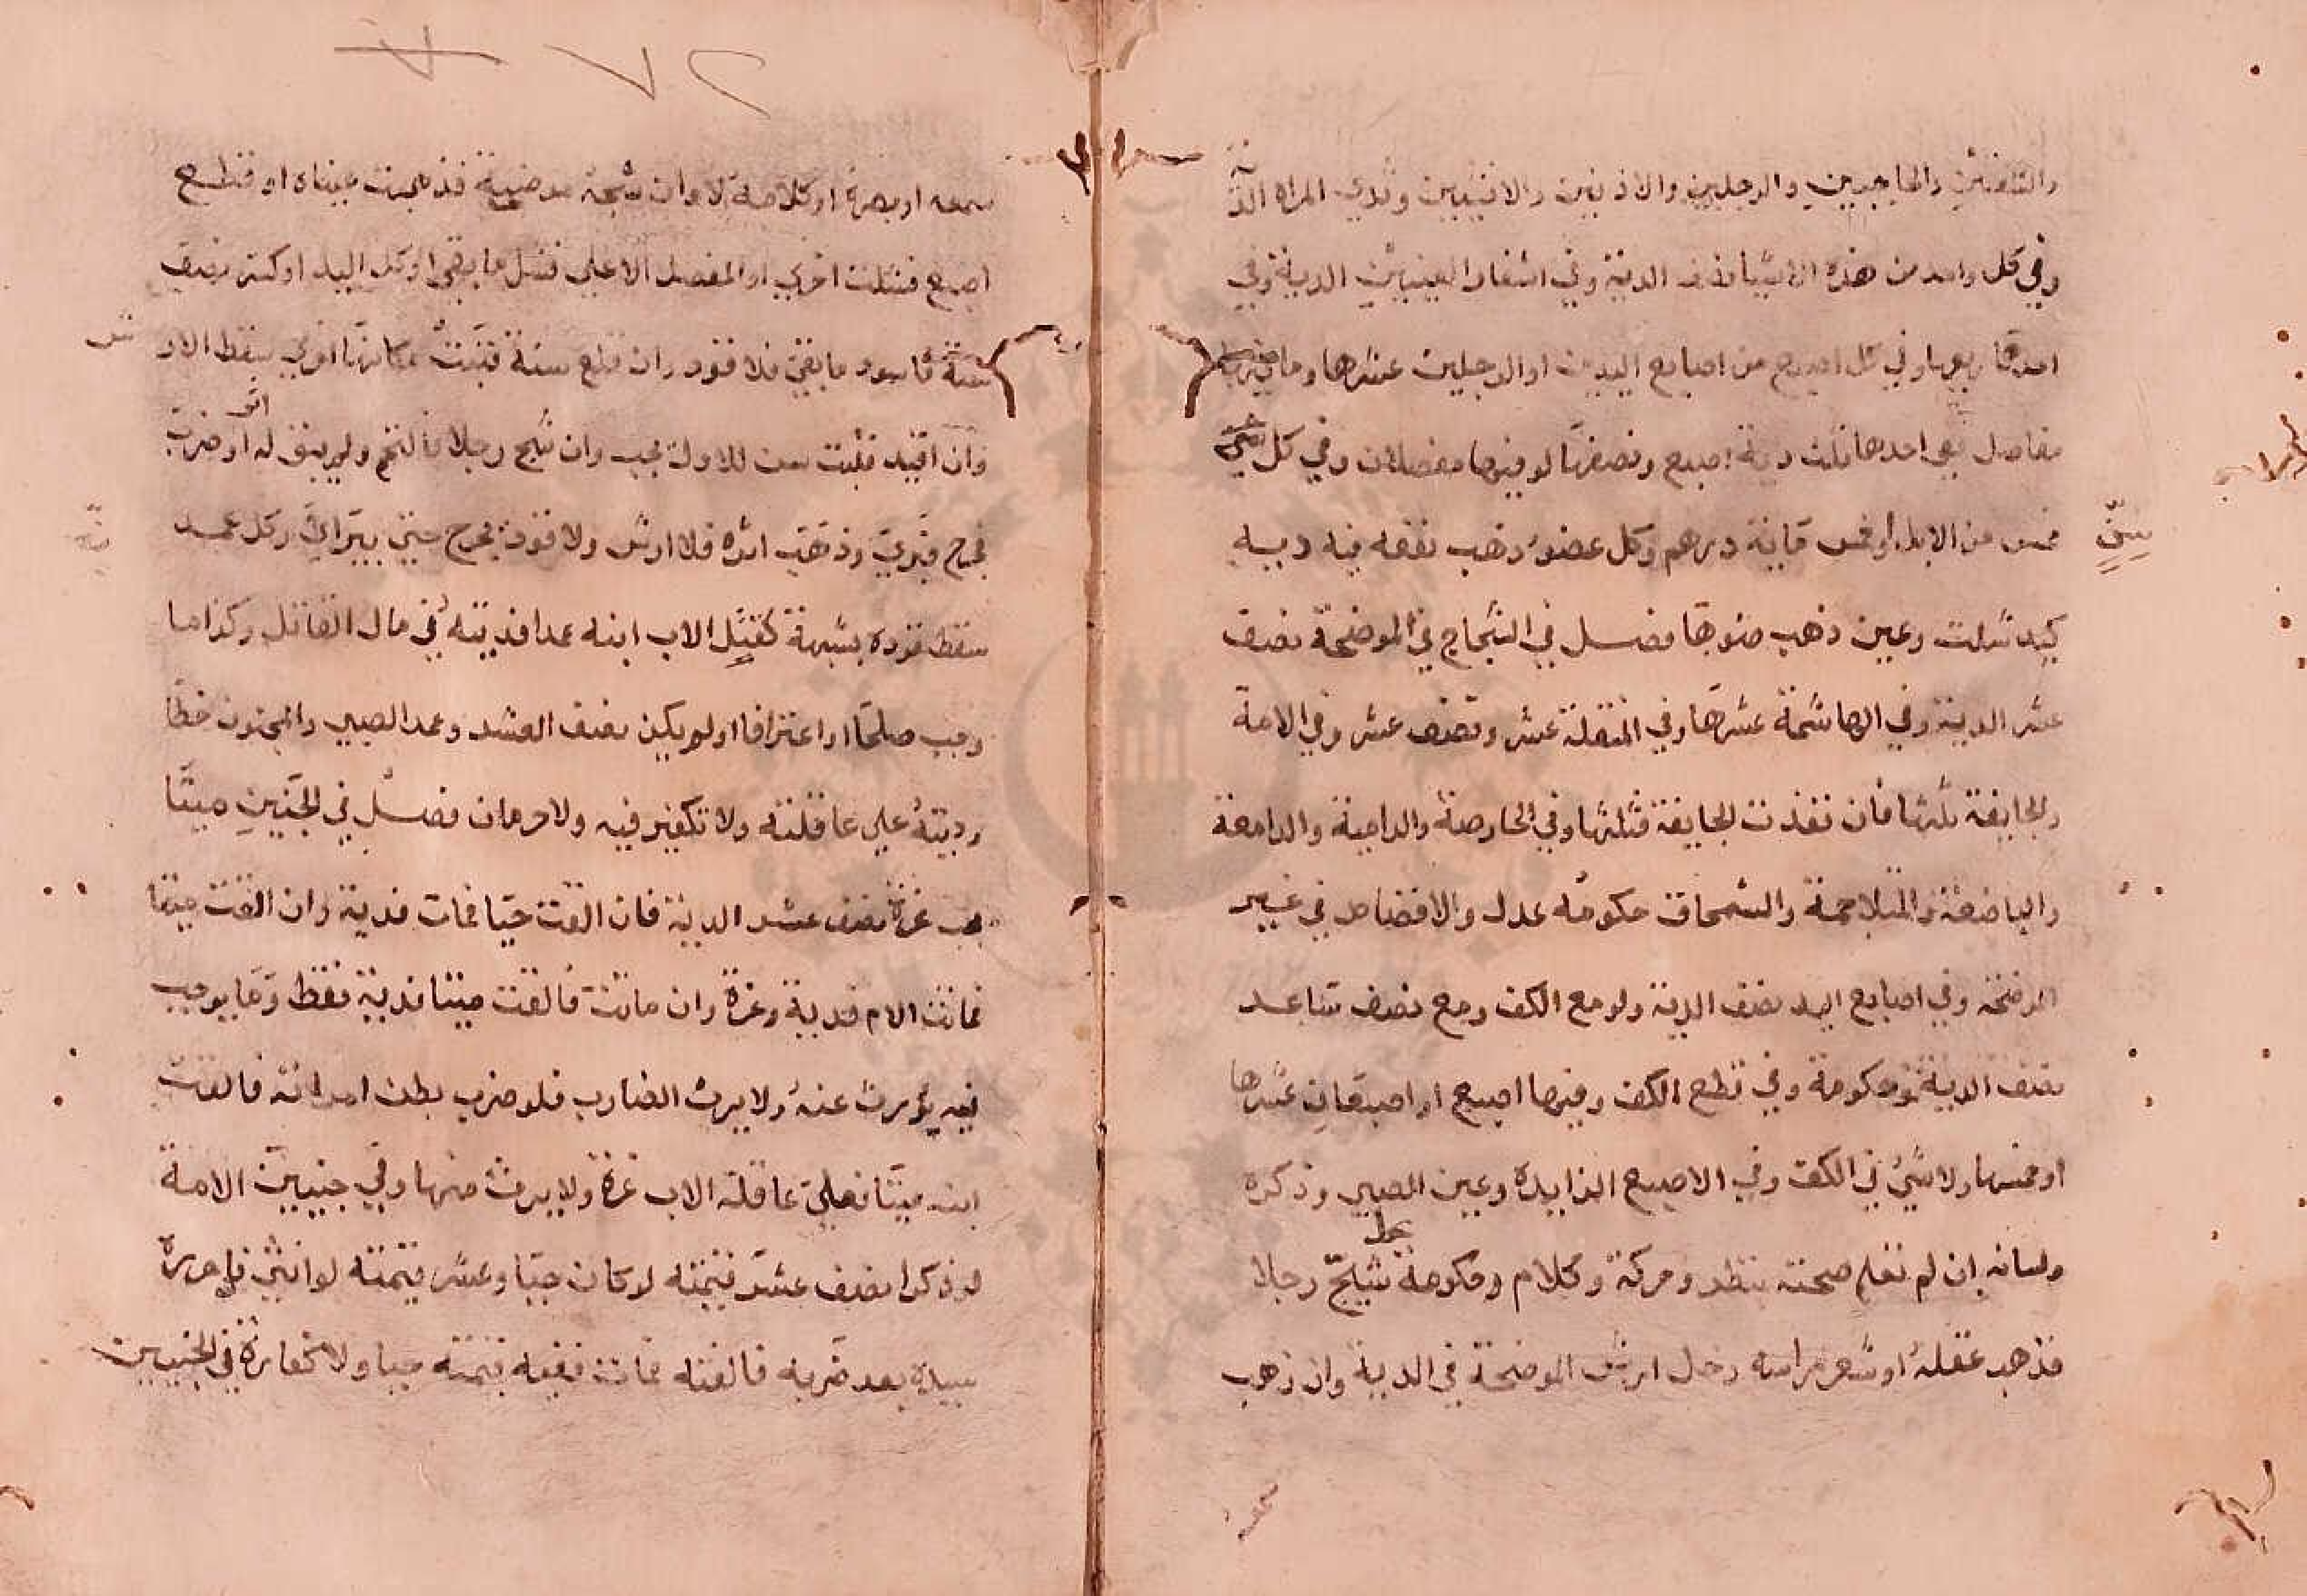 والشفتين والحاجبين والرجلين والاذنين والانثيين وثديي المراة الدية
وفي كل واحد من هذه الاشيا نصف الدية وفي اشفار العينين الدية وفي
احدها ربعها وفي كل اصبع من اصابع اليدين او الرجلين عشرها وما فيها
مفاصل ففي احدها ثلث دية اصبع ونصفها لو فيها مفصلان وفي كل
سن
خمس من الابل او خمس ماية درهم وكل عضو ذهب نفعه ففيه دية
كيد شلت وعين ذهب ضوها فصل في الشجاج في الموضحة نصف
عشر الدية وفي الهاشمة عشرها وفي المنقلة عشر ونصف عشر وفي الامة
والجايفة ثلثها فان نفذت الجايفة فثلثاها وفي الحارصة والدامية والدامعة
والباضعة والمتلاحمة والسمحاق حكومة عدل ولا قصاص في غير
الموضحة وفي اصابع اليد نصف الدية ولو مع الكف ومع نصف ساعد
نصف الدية وحكومة وفي قطع الكف وفيها اصبع او اصبعان عشرها
او خمسها ولا شي في الكف وفي الاصبع الزايدة وعين الصبي وذكره
ولسانه ان لم تعلم صحته بنظر وحركة وكلام وحكومة شج رجلا
فذهب عقله او شعر راسه دخل ارش الموضحة في الدية وان ذهب
سمعه
سمعه او بصره او كلامه لا وان شجه موضحة فذهبت عيناه او قطع
اصبع فشلت اخرى او المفصل الاعلى فشل ما بقي او كل اليد او كسر نصف
سنه فاسود ما بقي فلا قود وان قلع سنه فنبتت مكانها اخرى سقط الارش
وان اقيد فنبت سن الاول يجب وان شج رجلا فالتحم ولم يبق له اثر او ضرب
فجرح فبرئ وذهب اثره فلا ارش ولا قود بجرح حتى يبرا وكل عمد
سقط قوده بشبهة كقتل الاب ابنه عمدا فديته في مال القاتل وكذا ما
وجب صلحا او اعترافا او لم يكن نصف العشر وعمد الصبي والمجنون خطا
وديته على عاقلته ولا تكفير فيه ولا حرمان فصل في الجنين ميتا
يجب غرة نصف عشر الدية فان القت حيا فمات فدية وان القت ميتا
فماتت الام فدية وغرة وان ماتت فالقت ميتا فدية فقط وما يوجب
فيه يورث عنه ولا يرث الضارب فلو ضرب بطن امراته فالقت
ابنه ميتا فعلى عاقلة الاب غرة ولا يرث منها وفي جنين الامة
لو ذكرا نصف عشر قيمته لو كان حيا وعشر قيمته لو انثى فلو حرره
سيده بعد ضربه فالقته فمات ففيه قيمته حيا ولا كفارة في الجنين